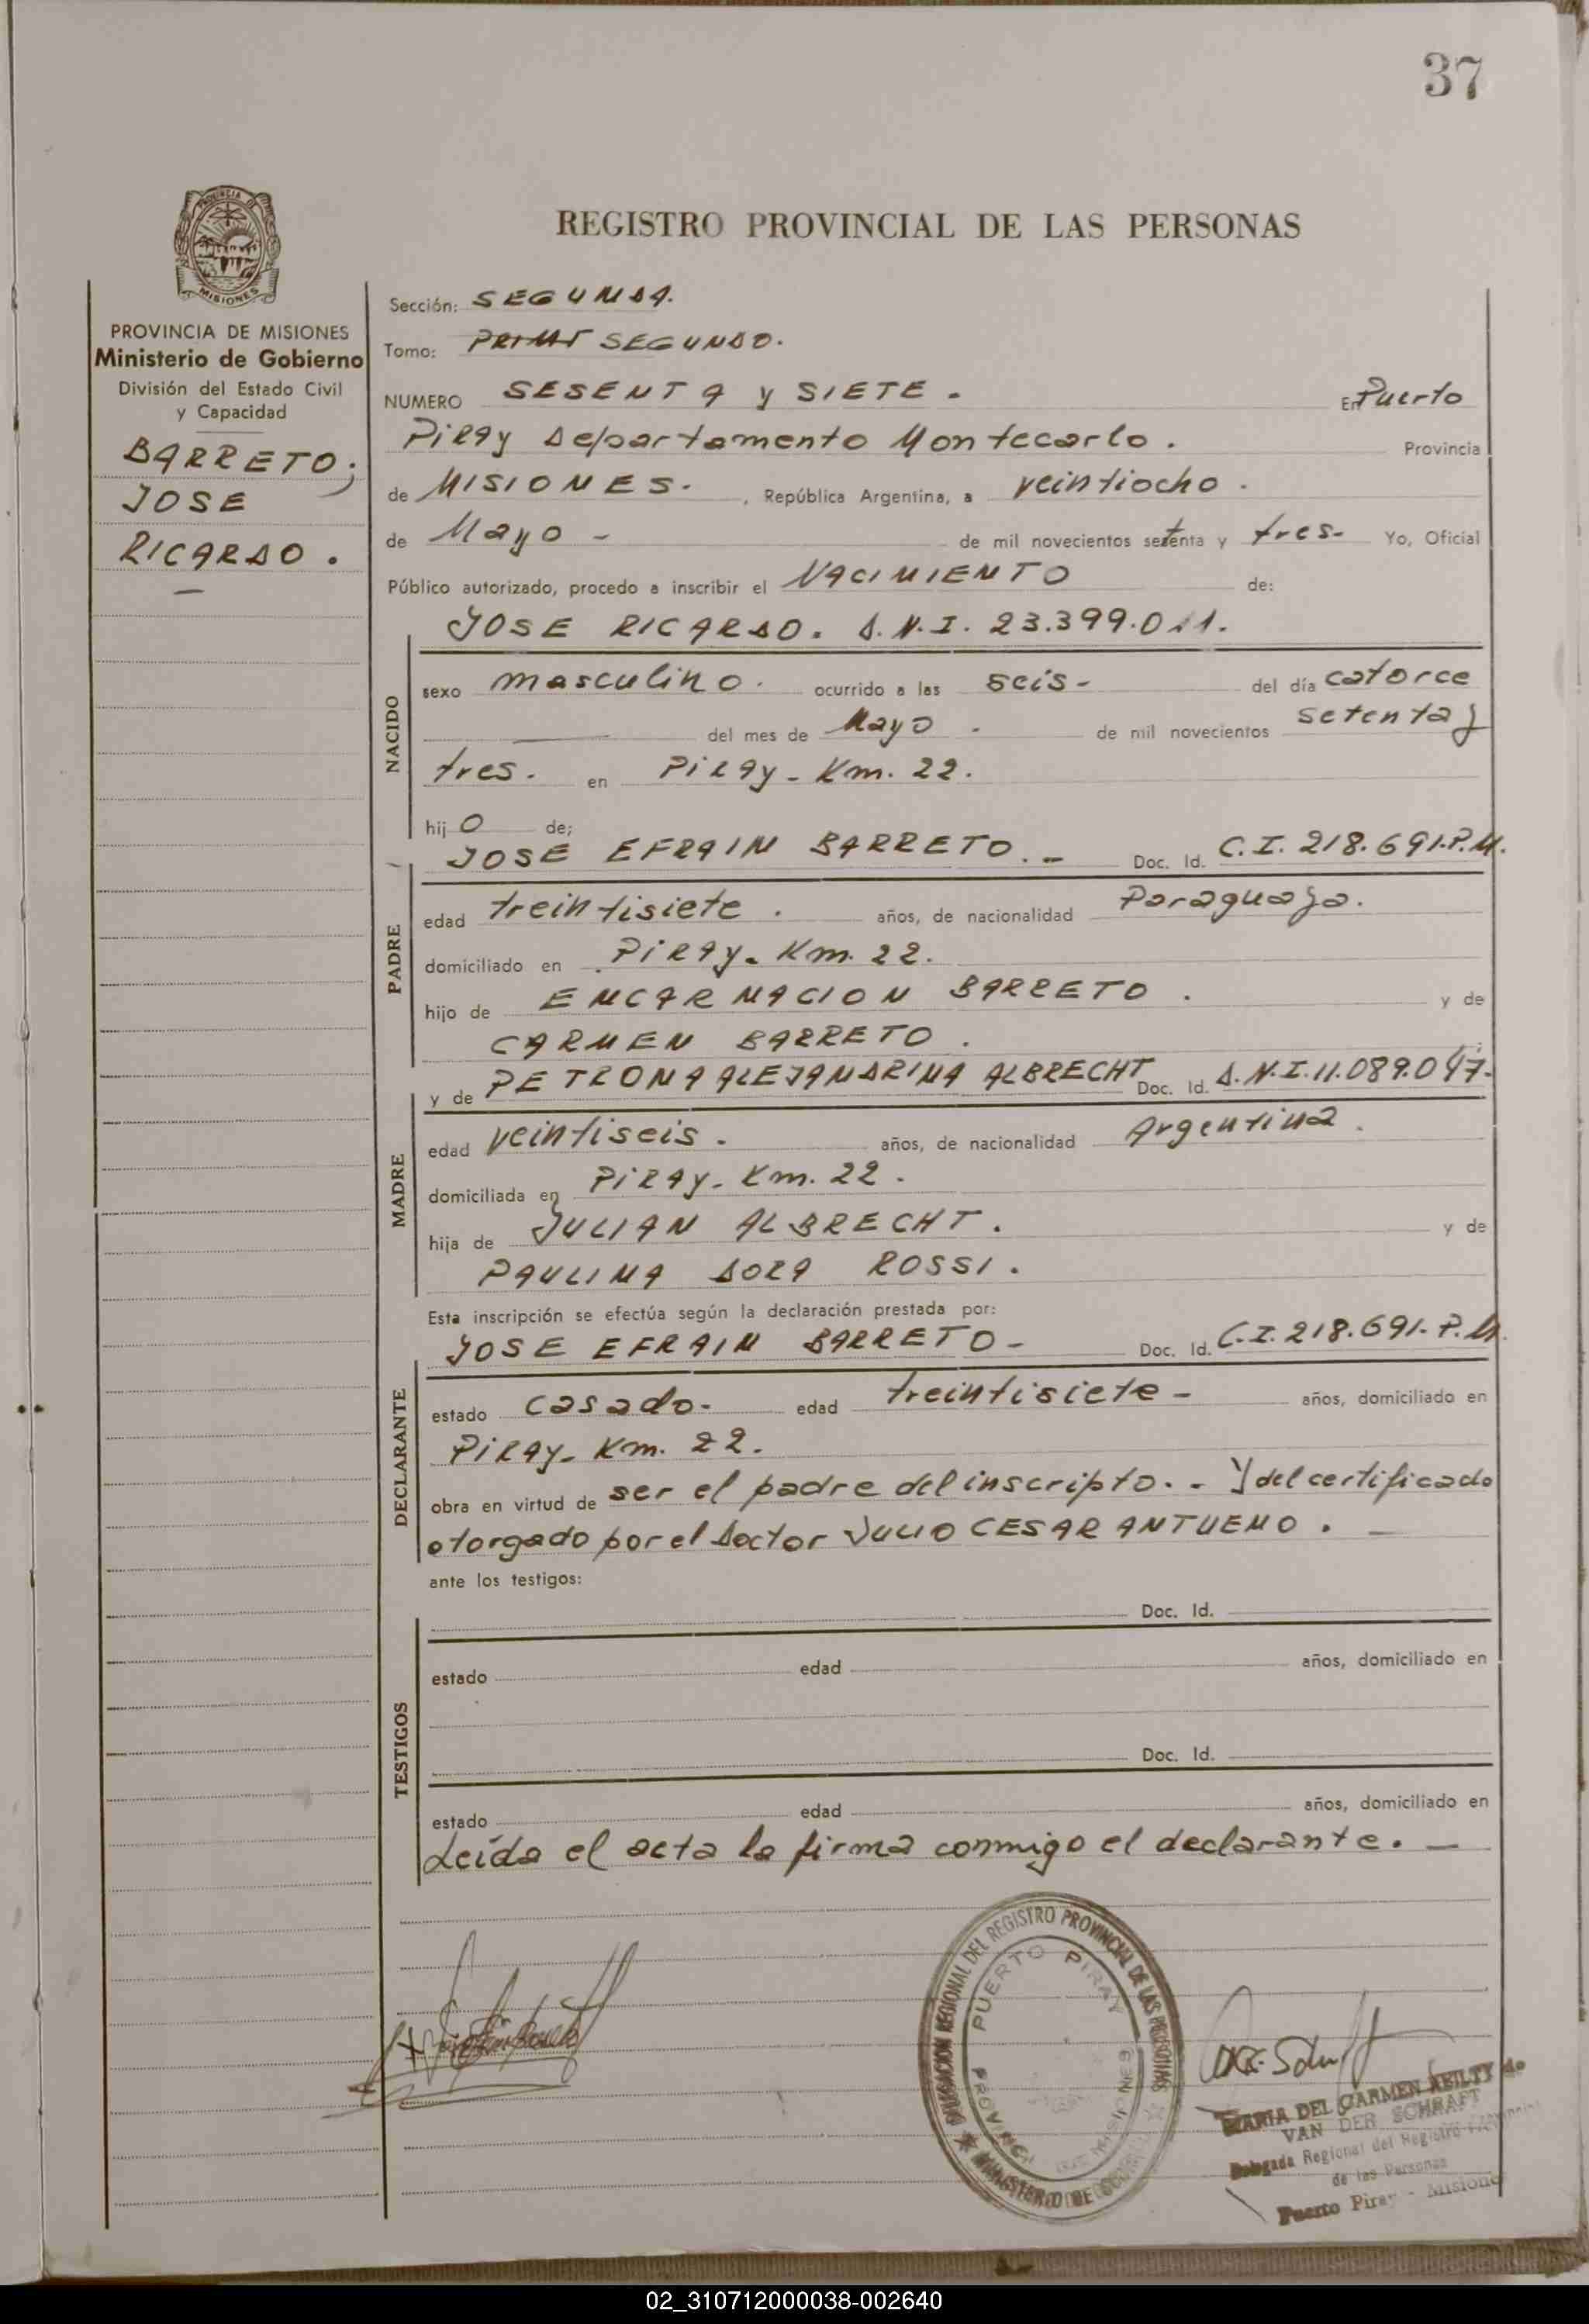 37
REGISTRO PROVINCIAL DE LAS PERSONAS
PROVINCIA DE
MISIONES
PROVINCIA DE MISIONES
Ministerio de Gobierno
División del Estado Civil
y Capacidad
BARRETO;
JOSE
RICARDO.
Sección: SEGUNDA.
Tomo: SEGUNDO.
NUMERO SESENTA y SIETE. En Puerto
Piray Departamento Montecarlo. Provincia
de MISIONES. , República Argentina, a veintiocho.
de Mayo - de mil novecientos setenta y tres- Yo, Oficial
Público autorizado, procedo a inscribir el NACIMIENTO de:
JOSE RICARDO. D.N.I. 23.399.011.
NACIDO
sexo masculino. ocurrido a las seis- del día catorce
del mes de Mayo. de mil novecientos setenta y
tres. en Piray- Km. 22.
hij o de;
JOSE EFRAIN BARRETO.- Doc. Id. C.I. 218.691.P.M.
PADRE
edad treintisiete. años, de nacionalidad Paraguaya.
domiciliado en Piray- Km. 22.
hijo de ENCARNACION BARRETO. y de
CARMEN BARRETO.
y de PETRONA ALEJANDRINA ALBRECHT Doc. Id. D.N.I. 11.089.047.
MADRE
edad veintiseis. años, de nacionalidad Argentina.
domiciliada en Piray- Km. 22.
hija de JULIAN ALBRECHT. y de
PAULINA DORA ROSSI.
Esta inscripción se efectúa según la declaración prestada por:
JOSE EFRAIN BARRETO- Doc. Id. C.I. 218.691.P.M.
DECLARANTE
estado casado- edad treintisiete- años, domiciliado en
Piray- Km. 22.
obra en virtud de ser el padre del inscripto.- Y del certificado
otorgado por el Doctor JULIO CESAR ANTUENO. -
ante los testigos:
Doc. Id.
TESTIGOS
estado edad años, domiciliado en
Doc. Id.
estado edad años, domiciliado en
Leída el acta la firma conmigo el declarante. -
DELEGACION REGIONAL DEL REGISTRO PROVINCIAL DE LAS PERSONAS
PUERTO PIRAY
PROVINCIA DE MISIONES
MINISTERIO DE
MARIA DEL CARMEN de
VAN DER SCHRAFT
Delegada Regional del Registro Provincial
de las Personas
Puerto Piray - Misiones
02_310712000038-002640